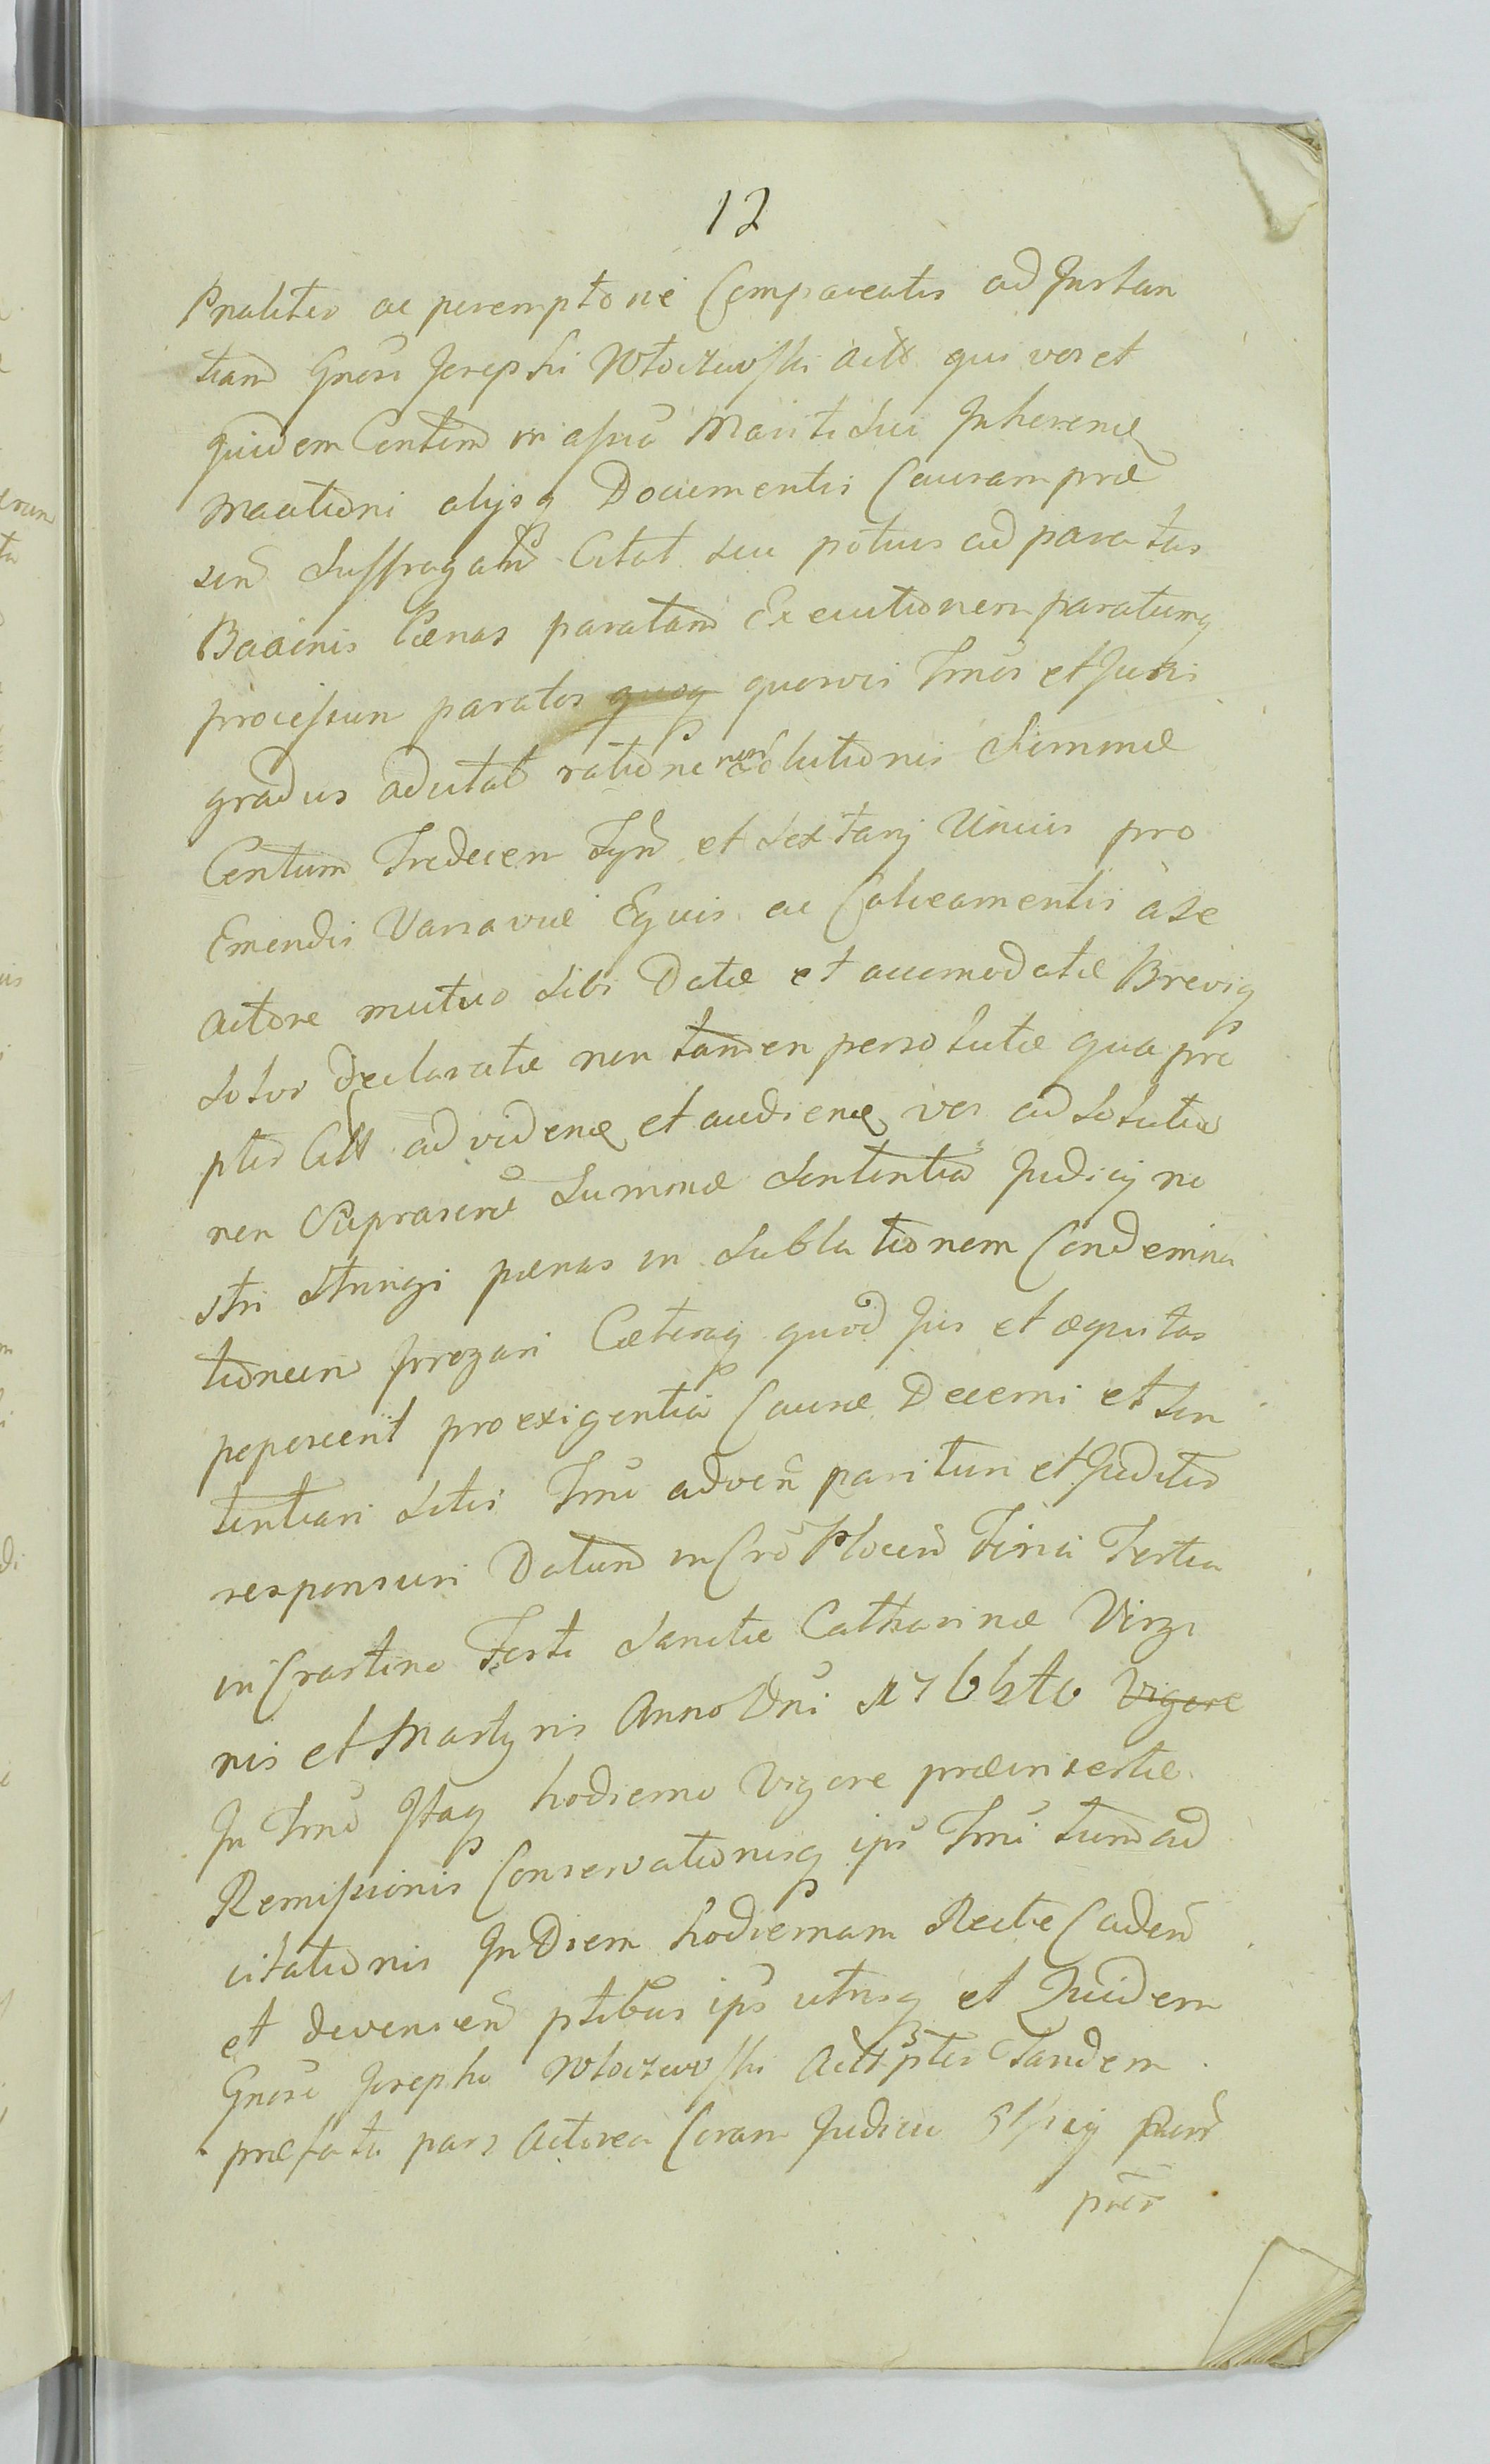 12
Pnaliter ac peremptorie Compareatis ad Jnstan
tiam Gnosi Josephi Włoczewski Actt qui vos et
quidem Contum in assia Mariti Sui Jnherene
maationi alijsq Documentis Causam præ
sen Suffragatu Citat seu potius ad paratas
Baainis Pænas paratam Executionem paratumq
processum paratos quosvis Tmos et Juris
gradus adcitat ratione non Solutionis Summæ
Centum Tredecem Tyn et Sextarij Unius pro
Emendis Varsaviæ Equis ac Calceamentis a se
actore mutuo Sibi Datæ et accomodatæ Breviq
Solvi declaratæ non tamen persolutæ qua pro
pter Citt ad videne et audiene vos ad Solutio
nem Suprascrae Summæ Sententia Judicij no
stri Stringi pænas in Sublationem Condemna
tionum Jrrogari Cæteraq quod Jus et æquitas
poposcerit pro exigentia Causæ Decerni et Sen
tentiari Sitis Tmo adven parituri et Juditer
responsuri Datum in Cro Plocen Feria Tertia
in Crastino Festi Sanctæ Catharinæ Virgi
nis et Martyris Anno Dni 1766to Vigore
Jn Tmo Jtaq hodierno Vigore præinsertæ
Remissionis Conservationisq ipsi Tmi tum ad
citationis Jn Diem hodiernam Recte Caden
et devenien ptibus ipis utrisq et Quidem
Gnoso Josepho Włoczewski Actt ptes Tandem
præfata pars Actorea Coram Judicio
pnes